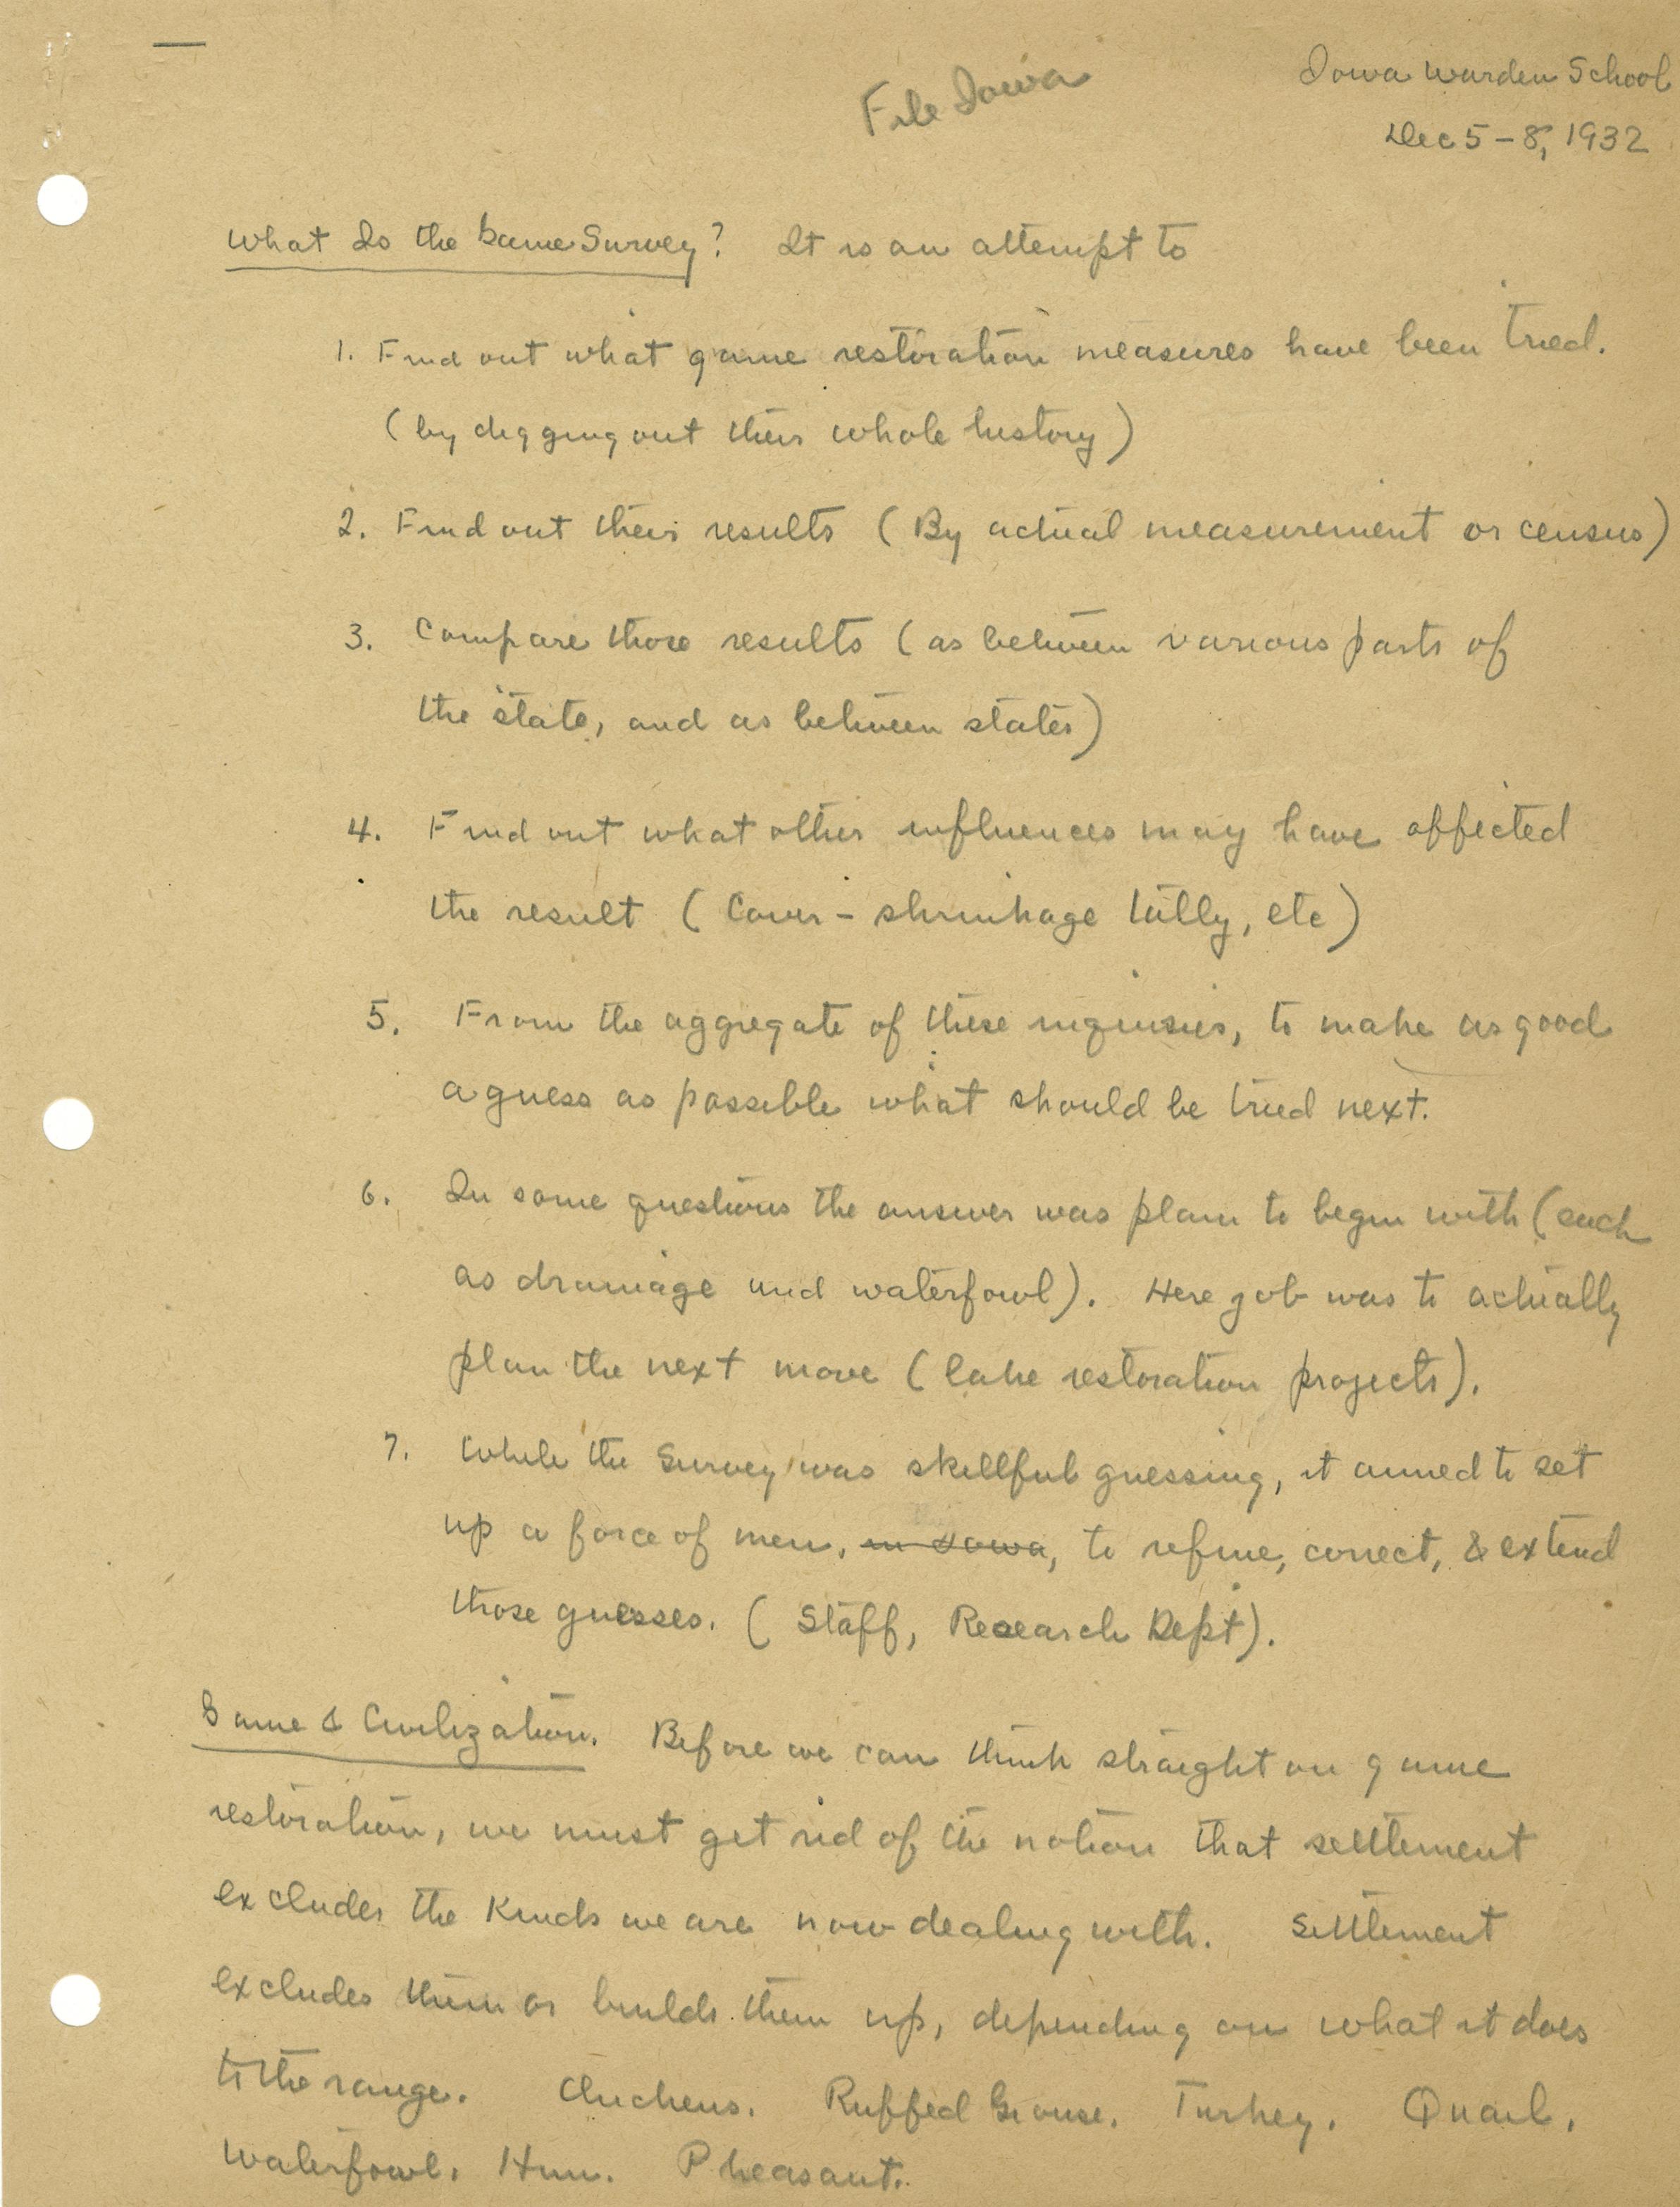 File Iowa
Iowa Warden School
Dec 5-8, 1932
What Is the Game Survey? It is an attempt to
1. Find out what game restoration measures have been tried.
(by digging out their whole history)
2. Find out their results (By actual measurement or census)
3. Compare those results (as between various parts of
the state, and as between states)
4. Find out what other influences may have affected
the result (Cover-shrinkage, etc)
5. From the aggregate of these inquiries, to make as good
a guess as possible what should be tried next.
6. In some questions the answer was plain to begin with (such
as drainage and waterfowl). Here job was to actually
plan the next move (lake restoration projects).
7. While the Survey was skillful guessing, it aimed to set
up a force of men, in Iowa, to refine, correct, & extend
those guesses. (Staff, Research Dept).
Game & Civilization. Before we can think straight on game
restoration, we must get rid of the notion that settlement
excludes the kinds we are now dealing with. Settlement
excludes them or builds them up, depending on what it does
to the range. Chickens. Ruffed Grouse. Turkey. Quail.
Waterfowl. Hun. Pheasant.